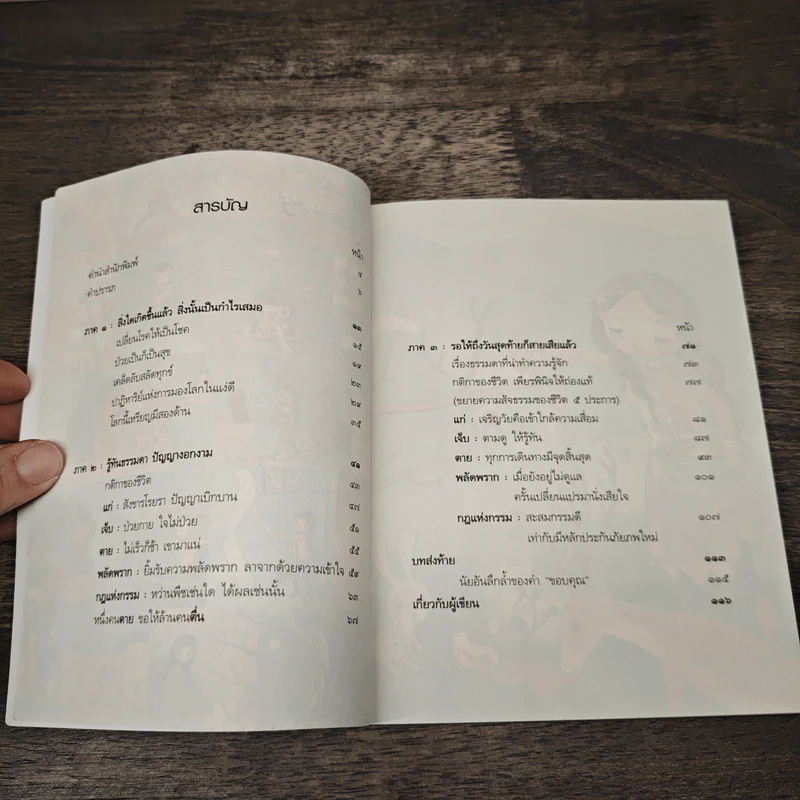 สารบัญ
หน้า
คำนำสำนักพิมพ์ ๔
คำปรารภ ๖
ภาค ๑ : สิ่งใดเกิดขึ้นแล้ว สิ่งนั้นเป็นกำไรเสมอ ๑๓
เปลี่ยนโรคให้เป็นโชค ๑๕
ป่วยเป็นก็เป็นสุข ๑๙
เคล็ดลับสลัดทุกข์ ๒๓
ปาฏิหาริย์แห่งการมองโลกในแง่ดี ๒๙
โลกนี้เหรียญมีสองด้าน ๓๕
ภาค ๒ : รู้ทันธรรมดา ปัญญางอกงาม ๔๑
กติกาของชีวิต ๔๓
แก่ : สังขารโรยรา ปัญญาเบิกบาน ๔๗
เจ็บ : ป่วยกาย ใจไม่ป่วย ๕๑
ตาย : ไม่เร็วก็ช้า เขามาแน่ ๕๕
พลัดพราก : ยิ้มรับความพลัดพราก ลาจากด้วยความเข้าใจ ๕๙
กฎแห่งกรรม : หว่านพืชเช่นใด ได้ผลเช่นนั้น ๖๓
หนึ่งคนตาย ขอให้ล้านคนตื่น ๖๗
หน้า
ภาค ๓ : รอให้ถึงวันสุดท้ายก็สายเสียแล้ว ๗๑
เรื่องธรรมดาที่น่าทำความรู้จัก ๗๓
กติกาของชีวิต เพียรพินิจให้ถ่องแท้ ๗๗
(ขยายความสัจธรรมของชีวิต ๕ ประการ)
แก่ : เจริญวัยคือเข้าใกล้ความเสื่อม ๘๑
เจ็บ : ตามดู ให้รู้ทัน ๘๗
ตาย : ทุกการเดินทางมีจุดสิ้นสุด ๙๓
พลัดพราก : เมื่อยังอยู่ไม่ดูแล ๑๐๑
ครั้นเปลี่ยนแปรมานั่งเสียใจ
กฎแห่งกรรม : สะสมกรรมดี ๑๐๗
เท่ากับมีหลักประกันภัยภพใหม่
บทส่งท้าย ๑๑๓
นัยอันลึกล้ำของคำ "ขอบคุณ" ๑๑๕
เกี่ยวกับผู้เขียน ๑๑๖